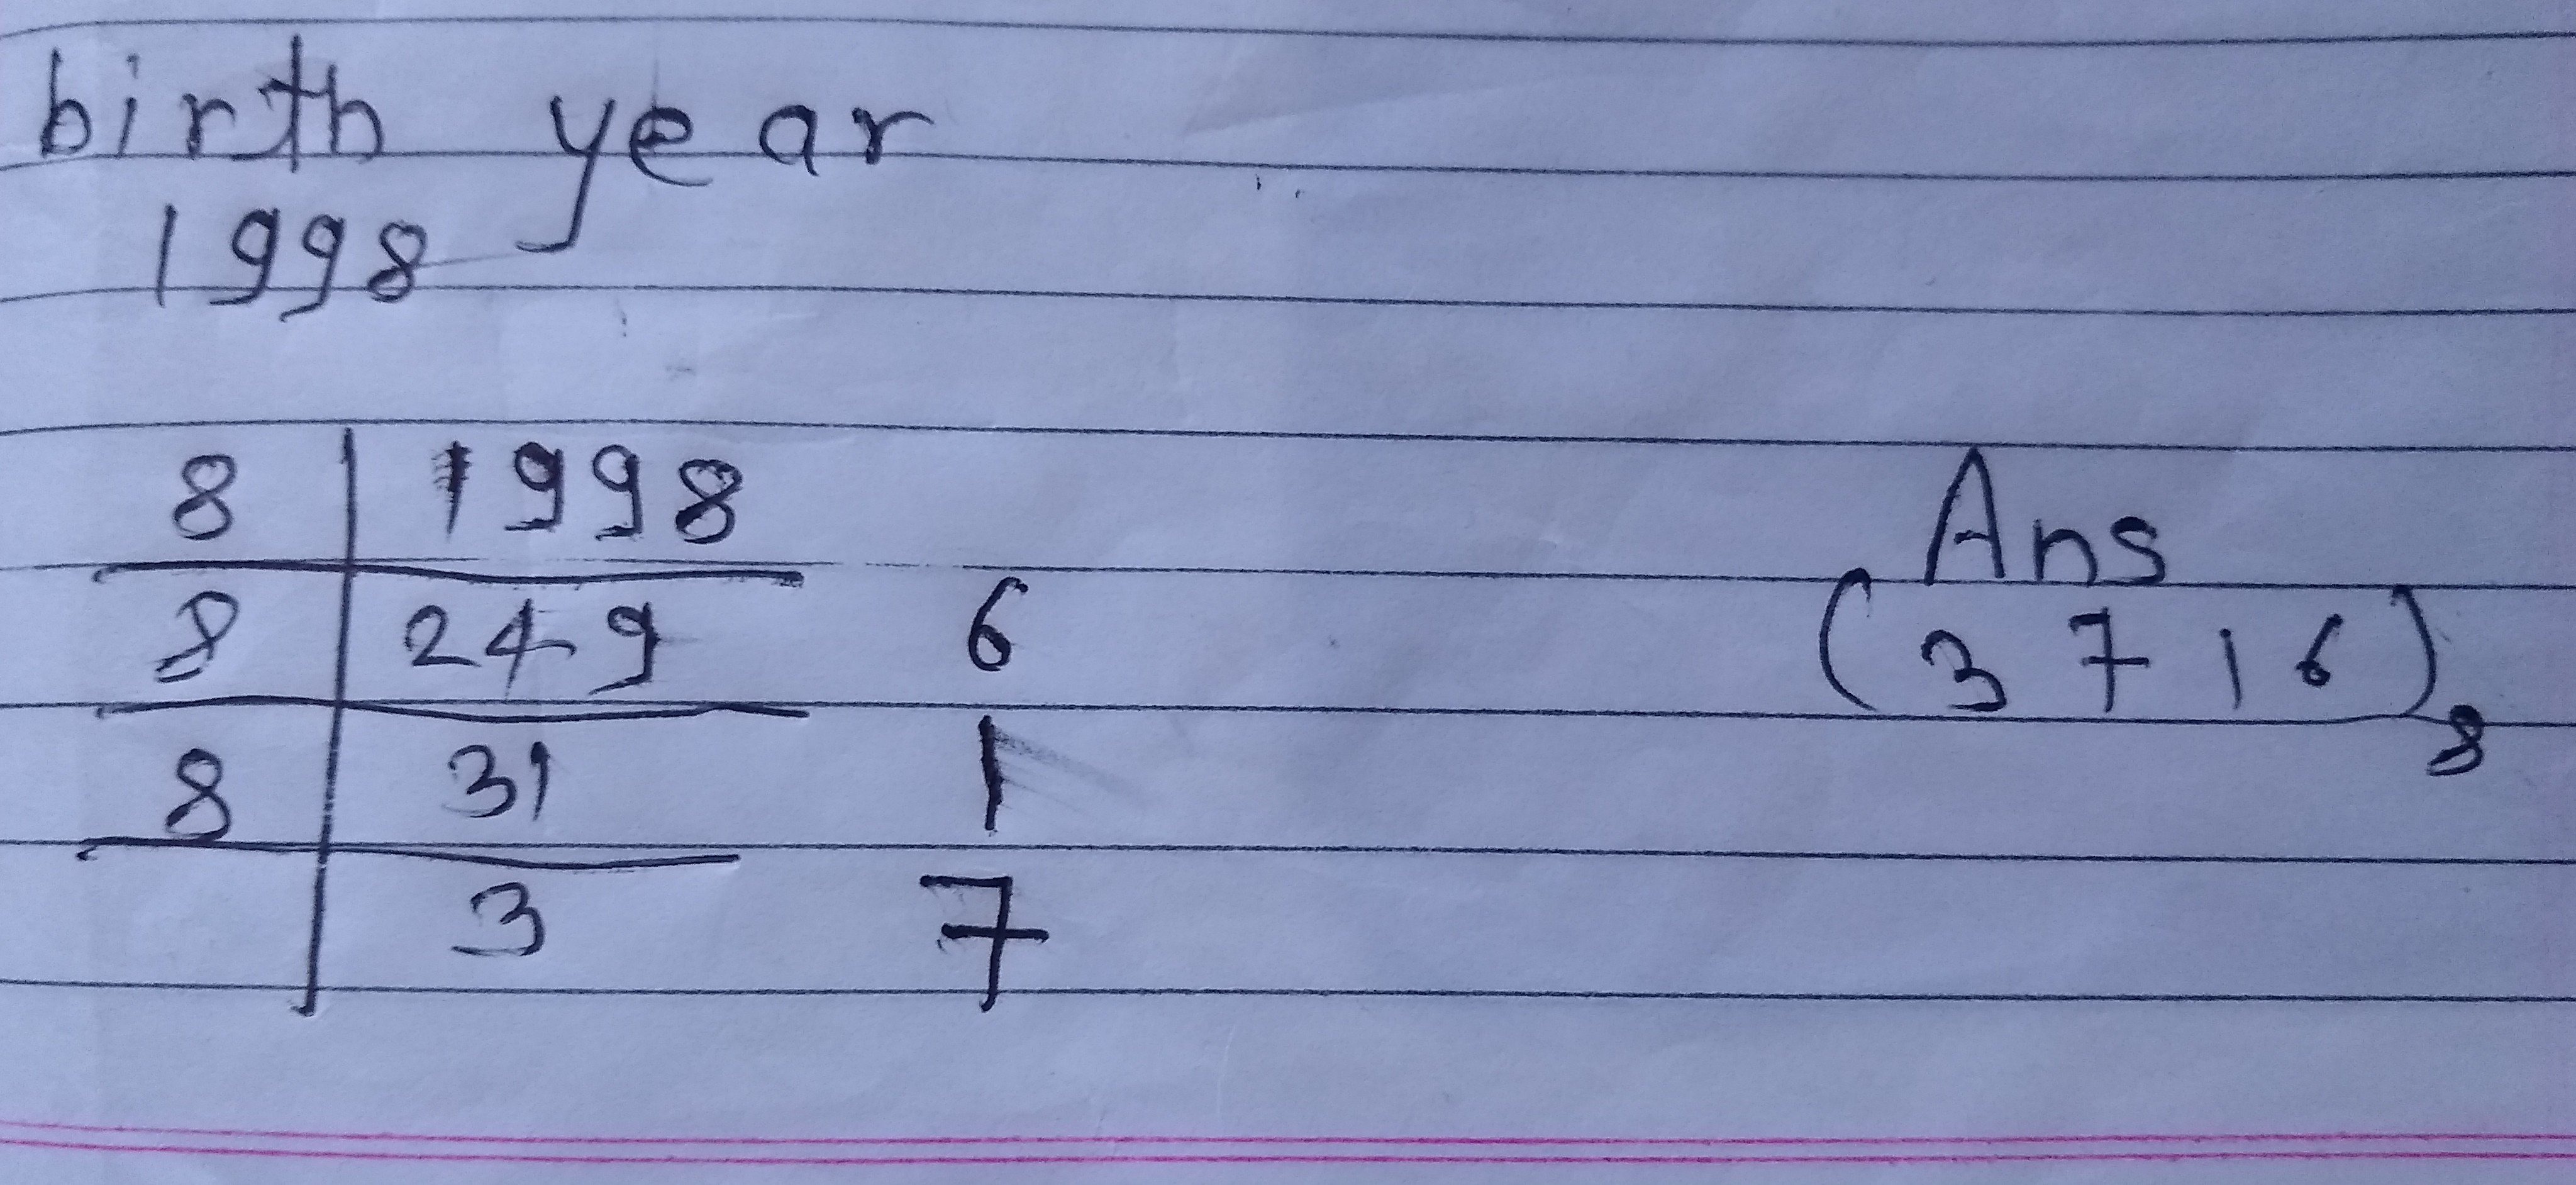 birth year
1998
8 | 1998
8 | 249 6
8 | 31 1
3 7
Ans
(3716)8